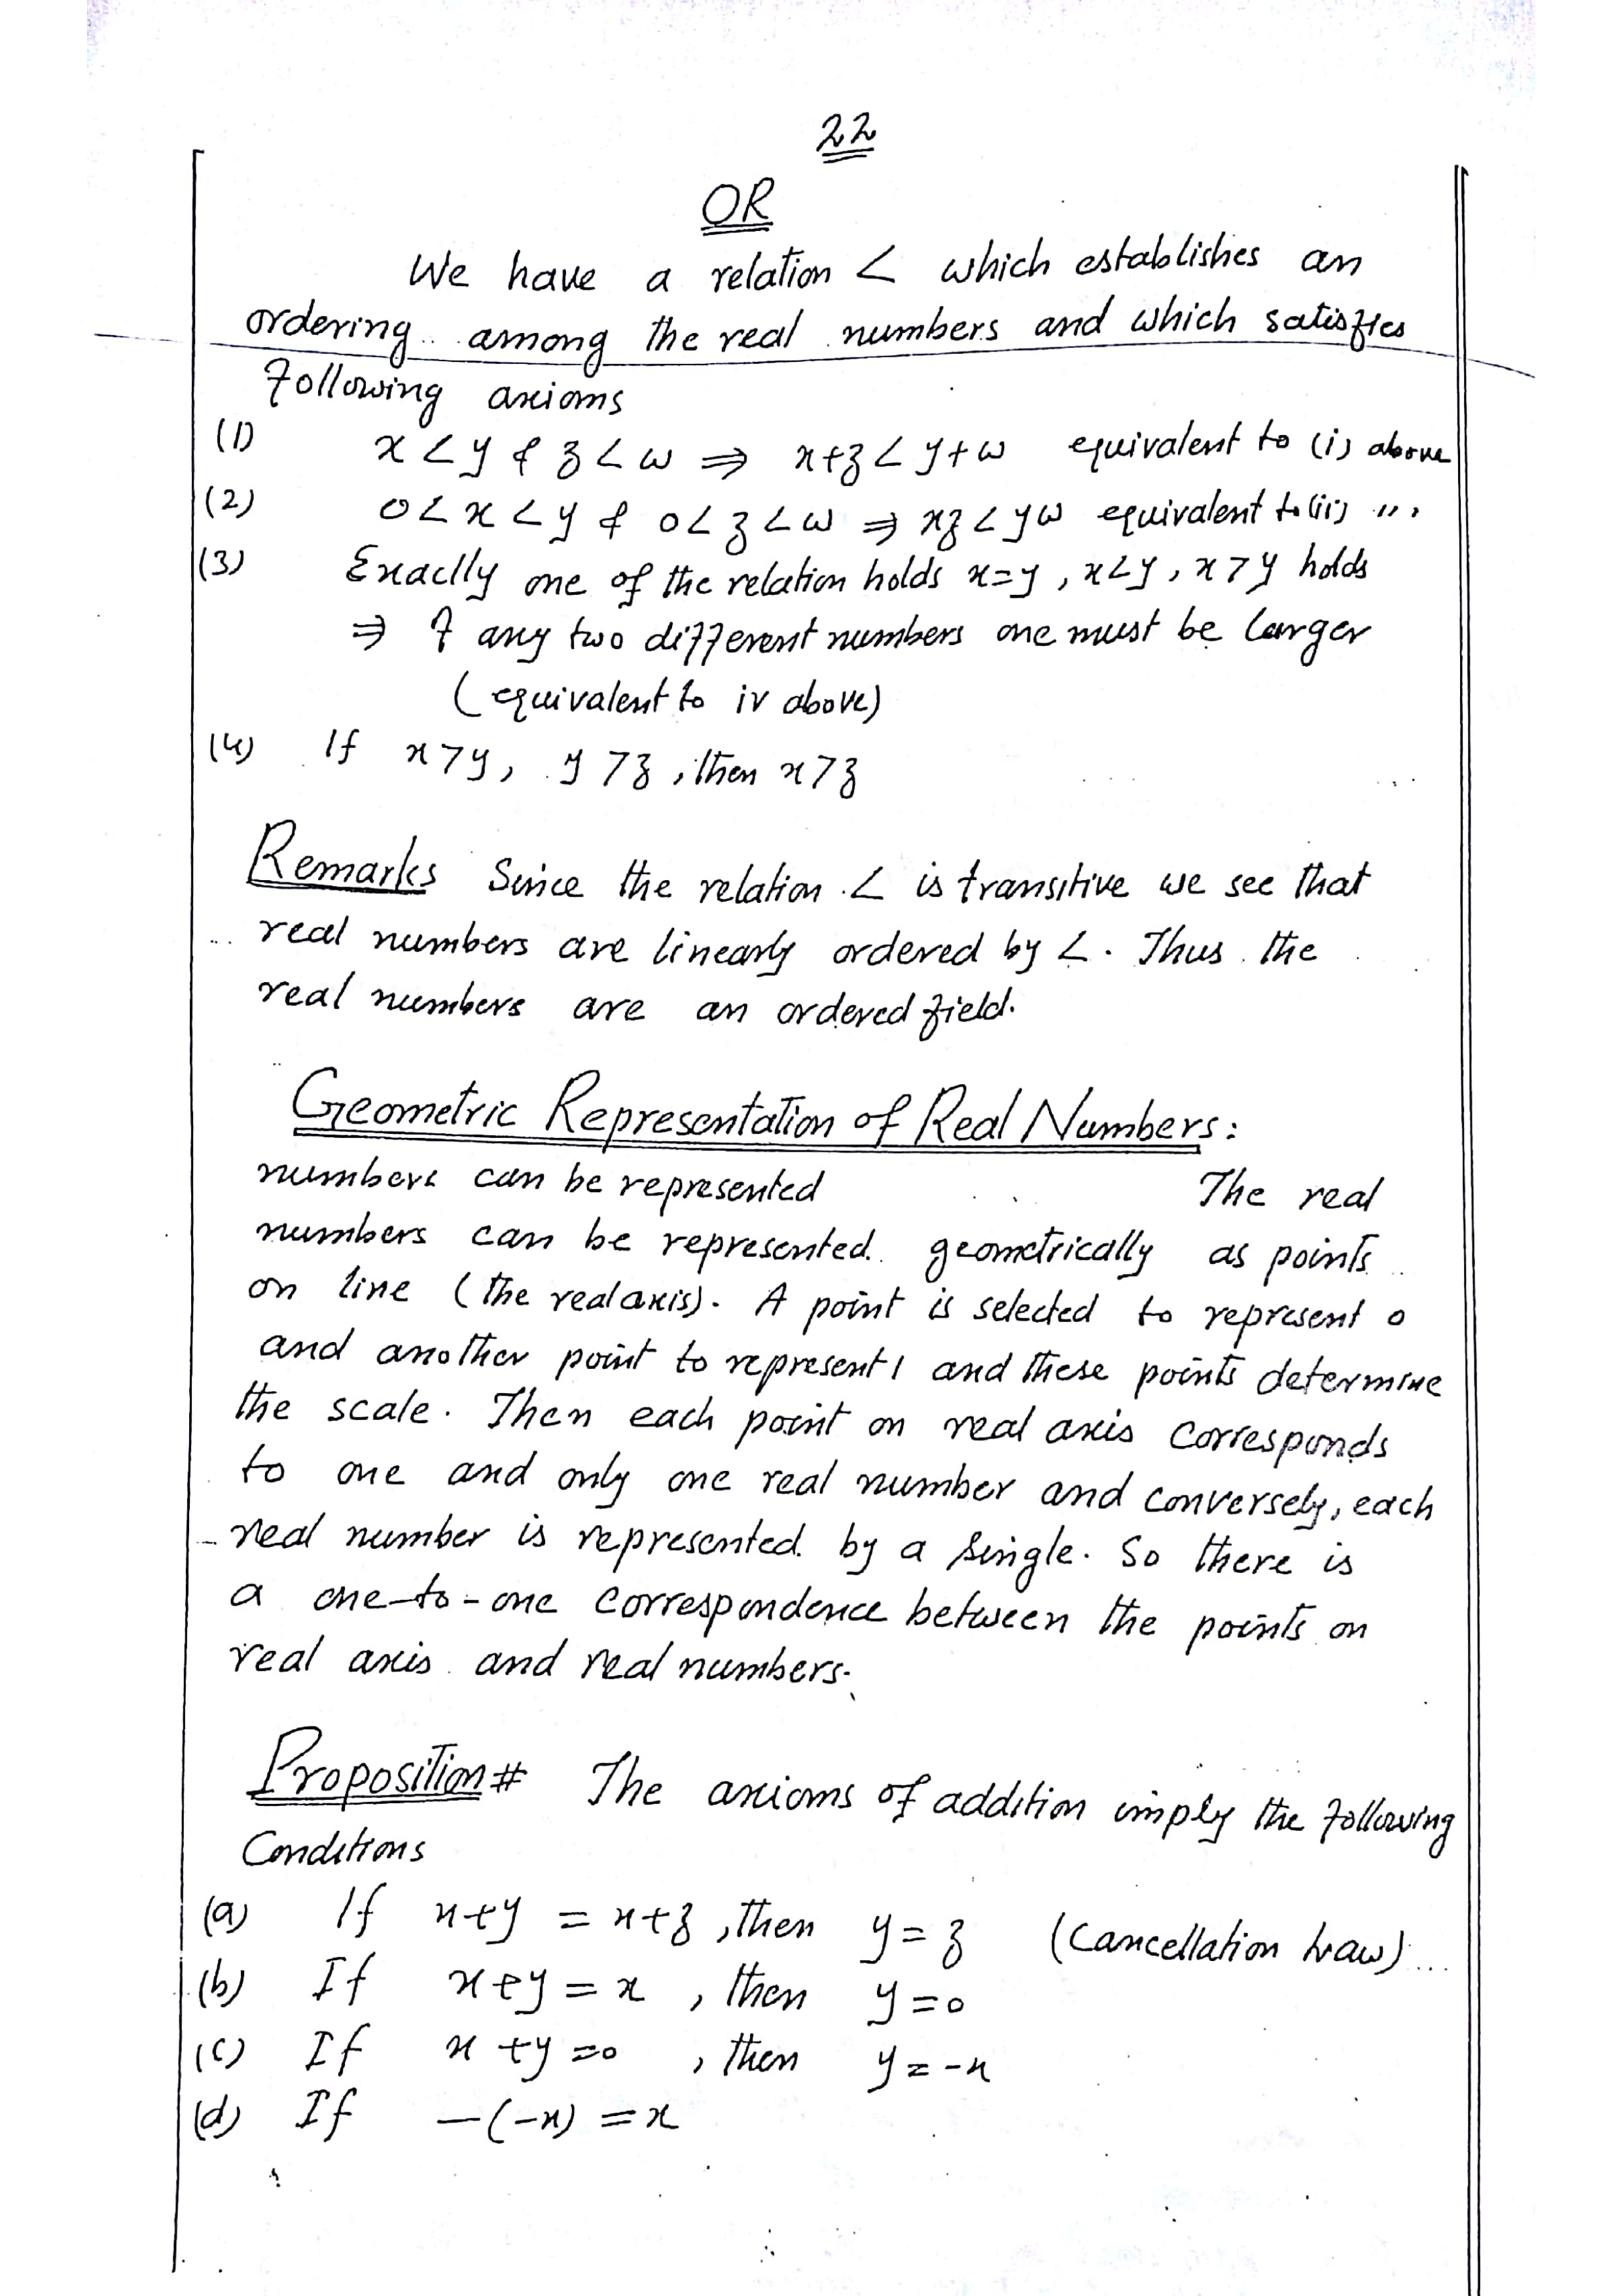 22
OR
We have a relation < which establishes an
ordering among the real numbers and which satisfies
following axioms
(1) x < y & z < w ⇒ x+z < y+w equivalent to (i) above
(2) 0 < x < y & 0 < z < w ⇒ xz < yw equivalent to (ii) ",,
(3) Exactly one of the relation holds x=y, x<y, x>y holds
⇒ If any two different numbers one must be larger
(equivalent to iv above)
(4) If x>y, y>z, then x>z
Remarks Since the relation < is transitive we see that
real numbers are linearly ordered by <. Thus the
real numbers are an ordered field.
Geometric Representation of Real Numbers:
numbers can be represented The real
numbers can be represented geometrically as points
on line (the real axis). A point is selected to represent 0
and another point to represent 1 and these points determine
the scale. Then each point on real axis corresponds
to one and only one real number and conversely, each
real number is represented by a single. So there is
a one-to-one correspondence between the points on
real axis and real numbers.
Proposition# The axioms of addition imply the following
Conditions
(a) If x+y = x+z, then y=z (Cancellation Law)
(b) If x+y=x, then y=0
(c) If x+y=0, then y=-x
(d) If -(-x) = x